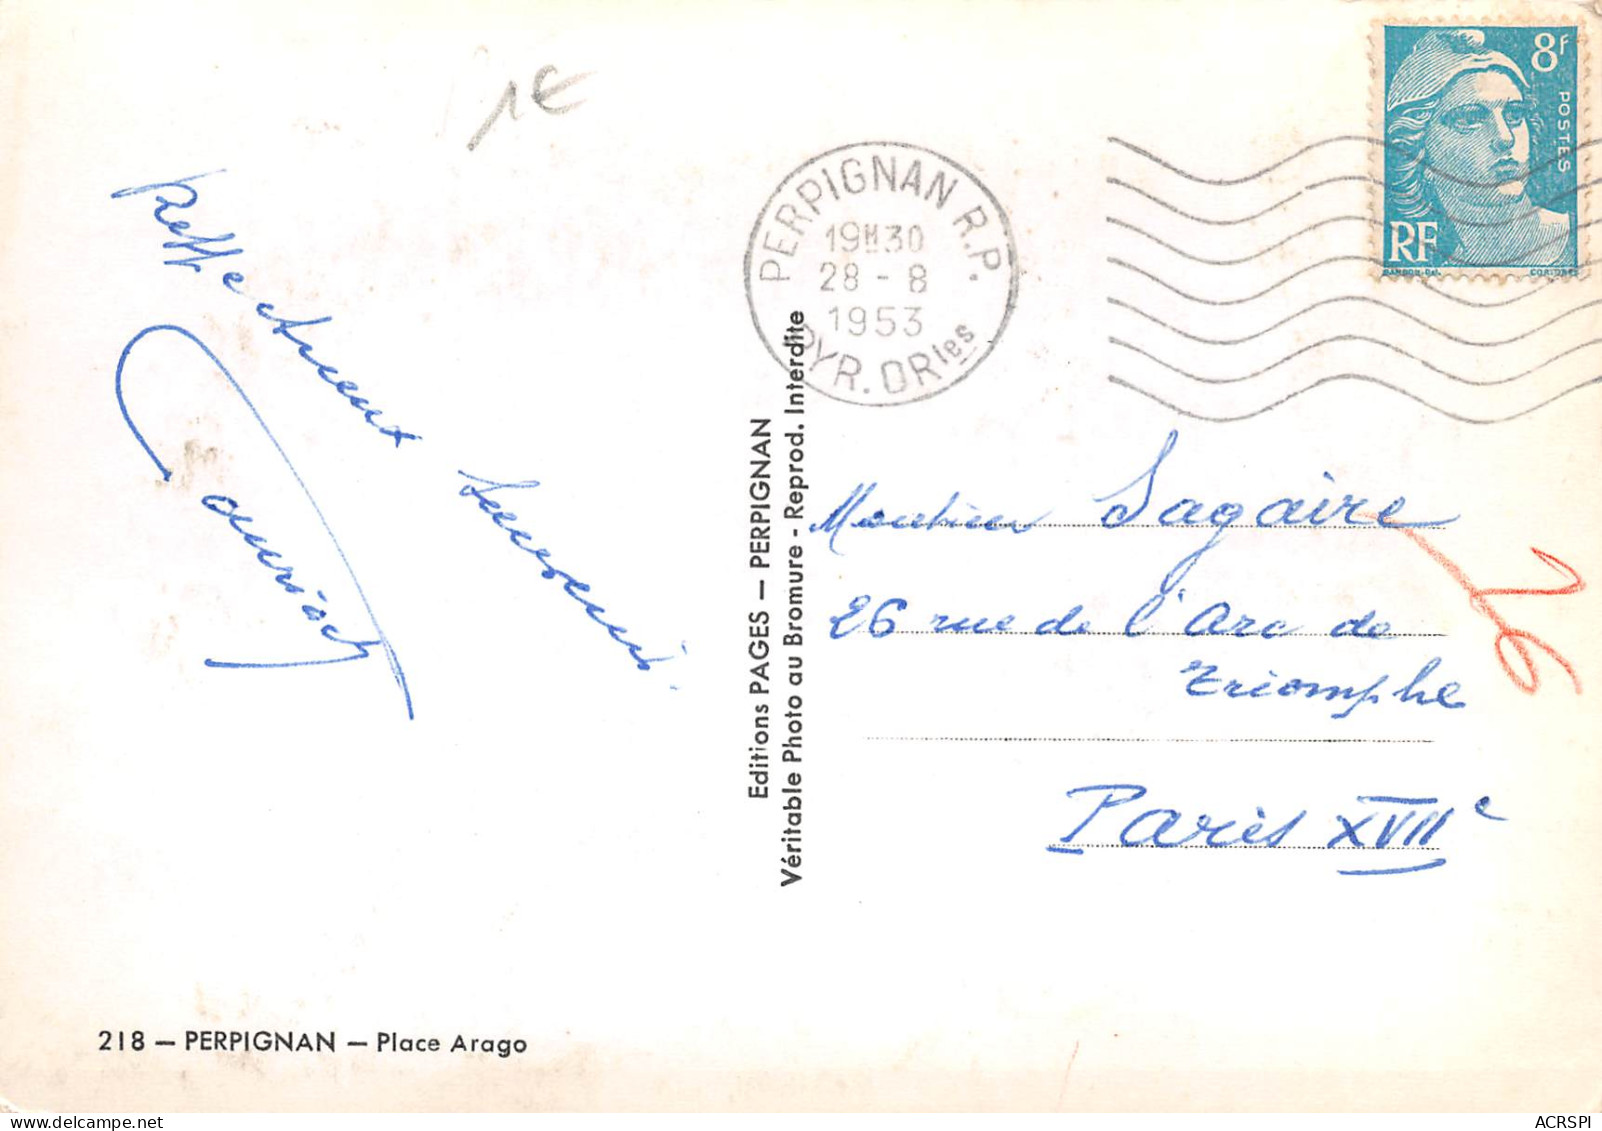 1€
8F
POSTES
RF
PERPIGNAN R.P.
19H30
28 - 8
1953
PYR. ORles
Souvenir
Editions PAGES — PERPIGNAN
Véritable Photo au Bromure - Reprod. Interdite
Monsieur Sagaire
26 rue de l'Arc de
Triomphe
Paris XVIIe
218 — PERPIGNAN — Place Arago
ACRSPI